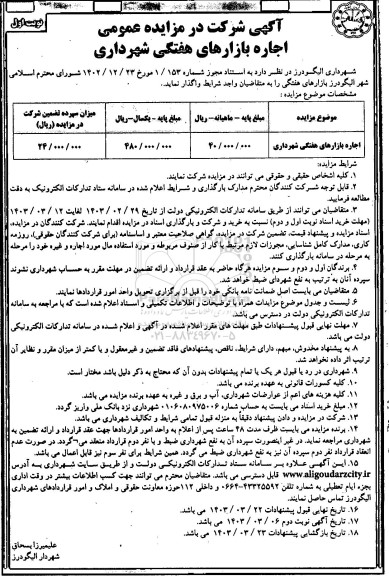 نوبت اول
آگهی شرکت در مزایده عمومی
اجاره بازارهای هفتگی شهرداری
شهرداری الیگودرز در نظر دارد به استناد مجوز شماره ۱/۱۵۳ مورخ ۱۴۰۲/۱۲/۲۳ شورای محترم اسلامی
شهر الیگودرز بازارهای هفتگی را به متقاضیان واجد شرایط واگذار نمایند.
مشخصات موضوع مزایده:
موضوع مزایده مبلغ پایه - ماهیانه- ریال مبلغ پایه - یکسال-ریال میزان سپرده تضمین شرکت در مزایده (ریال)
اجاره بازارهای هفتگی شهرداری ۴۰/۰۰۰/۰۰۰ ۴۸۰/۰۰۰/۰۰۰ ۲۴/۰۰۰/۰۰۰
شرایط مزایده:
۱. کلیه اشخاص حقیقی و حقوقی می توانند در مزایده شرکت نمایند.
۲. قابل توجه شرکت کنندگان محترم مدارک بارگذاری و شرایط اعلام شده در سامانه ستاد تدارکات الکترونیک به دقت
مطالعه فرمایید.
۳. متقاضیان می توانند از طریق سامانه تدارکات الکترونیکی دولت از تاریخ ۱۴۰۳/۰۲/۲۹ لغایت ۱۴۰۳/۰۳/۱۲
(مهلت خرید اسناد نوبت اول و دوم) نسبت به خرید و شرکت و بارگذاری اسناد در مزایده اقدام نمایند. شرکت کنندگان در مزایده،
اسناد مزایده و پیشنهاد قیمت، تضمین شرکت در مزایده، گواهی صلاحیت معتبر و اساسنامه (برای شرکت کنندگان حقوقی)، روزمه
کاری، مدارک کامل شناسایی، مجوزات لازم مرتبط با کار از صنوف مربوطه و مورد استفاده مال مورد اجاره و غیره خود را مرحله
به مرحله در سامانه بارگذاری کنند.
۴. برندگان اول و دوم و سوم مزایده هرگاه حاضر به عقد قرارداد و ارائه تضمین در مهلت مقرر به حساب شهرداری نشوند
سپرده آنان به ترتیب به نفع شهردای ضبط خواهد شد.
۵. متقاضیان می بایست اصل ضمانت نامه بانکی خود را قبل از برگزاری تحویل واحد امور قراردادها نمایند.
۶. لیست و جدول موضوع مزایدات همراه با توضیحات و اطلاعات تکمیلی و اسناد اعلام شده است که با مراجعه به سامانه
تدارکات الکترونیکی دولت در دسترس می باشد.
۷. مهلت نهایی قبول پیشنهادات طبق مهلت های مقرر اعلام شده در آگهی و اعلام شده در سامانه تدارکات الکترونیکی
دولت می باشد.
۸. به پیشنهاد مخدوش، مبهم، دارای شرایط، ناقص، پیشنهادهای فاقد تضمین و غیرمعقول و یا کمتر از میزان مقرر و نظایر آن
ترتیب اثر داده نخواهد شد.
۹. شهرداری در رد یا قبول هر یک یا تمام پیشنهادات بدون آن که محتاج به ذکر دلیل باشد مختار است.
۱۰. کلیه کسورات قانونی به عهده برنده می باشد.
۱۱. کلیه هزینه های اعم از عوارضات شهرداری، آب و برق و غیره به عهده برنده مزایده می باشد.
۱۲. مبلغ خرید اسناد می بایست به حساب شماره ۰۱۰۶۰۸۰۹۷۵۰۰۶ شهرداری نزد بانک ملی واریز گردد.
۱۳. شرکت در مزایده و دادن پیشنهاد دقیقاً به منزله قبول تمامی شرایط و تکالیف شهرداری می باشد.
۱۴. برنده مزایده می بایست ظرف مدت ۴۸ ساعت پس از اعلام به واحد امور قراردادها جهت عقد قرارداد و ارائه تضمین به
شهرداری مراجعه نماید. در غیر اینصورت سپرده آن به نفع شهرداری ضبط و با نفر دوم قرارداد منعقد می-گردد. در صورت عدم
انعقاد قرارداد نفر دوم سپرده آن نیز به نفع شهرداری ضبط می گردد. همین شرایط برای نفر سوم نیز قابل اعمال می باشد.
۱۵. این آگهی علاوه بر سامانه ستاد تدارکات الکترونیکی دولت و از طریق سایت شهرداری به آدرس
www.aligoudarzcity.ir قابل دسترسی می باشد. متقاضیان محترم می توانند جهت کسب اطلاعات بیشتر در وقت اداری
بجزء ایام تعطیلی به شماره تلفن ۰۶۶۴-۴۳۳۲۵۵۹۲ و داخلی ۱۱۲ حوزه معاونت حقوقی و املاک و امور قراردادهای شهرداری
الیگودرز تماس حاصل نمایند.
۱۶. تاریخ نهایی قبول پیشنهادات ۱۴۰۳/۰۳/۲۲ می باشد.
۱۷. تاریخ آگهی نوبت دوم ۱۴۰۳/۰۳/۰۶ می باشد.
۱۸. تاریخ بازگشایی پیشنهادات ۱۴۰۳/۰۳/۲۳ می باشد.
علیمیرزا یسحاق
شهردار الیگودرز
۰۲۱-۸۸۳۴۹۶۷۰-۵